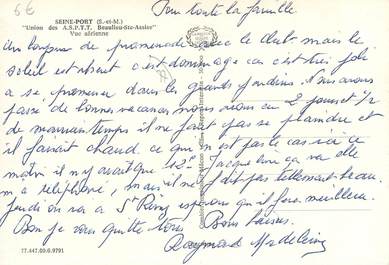 6€
Pour toute la famille
SEINE-PORT (S.-et-M.)
"Union des A.S.P.T.T. Beaulieu-Ste-Assise"
Vue aérienne
Un bonjour de promenade avec le Club mais le
soleil est absent c'est dommage car c'est très joli
a se promener dans les grands jardins. Nous avons
passé de bonnes vacances nous avons eu 2 jours et 1/2
de mauvais temps il ne faut pas se plaindre et
il faisait chaud ce qui n'est pas le cas ici ce
matin il n'y avait que 13° Jacqueline ça va elle
m a téléphoné, mais il ne fait pas tellement beau.
jeudi on va a St Rémy espérons qu'il fera meilleur.
Bon je vous quitte tous Bons baisers.
Raymond Madeleine
77.447.00.0.9791